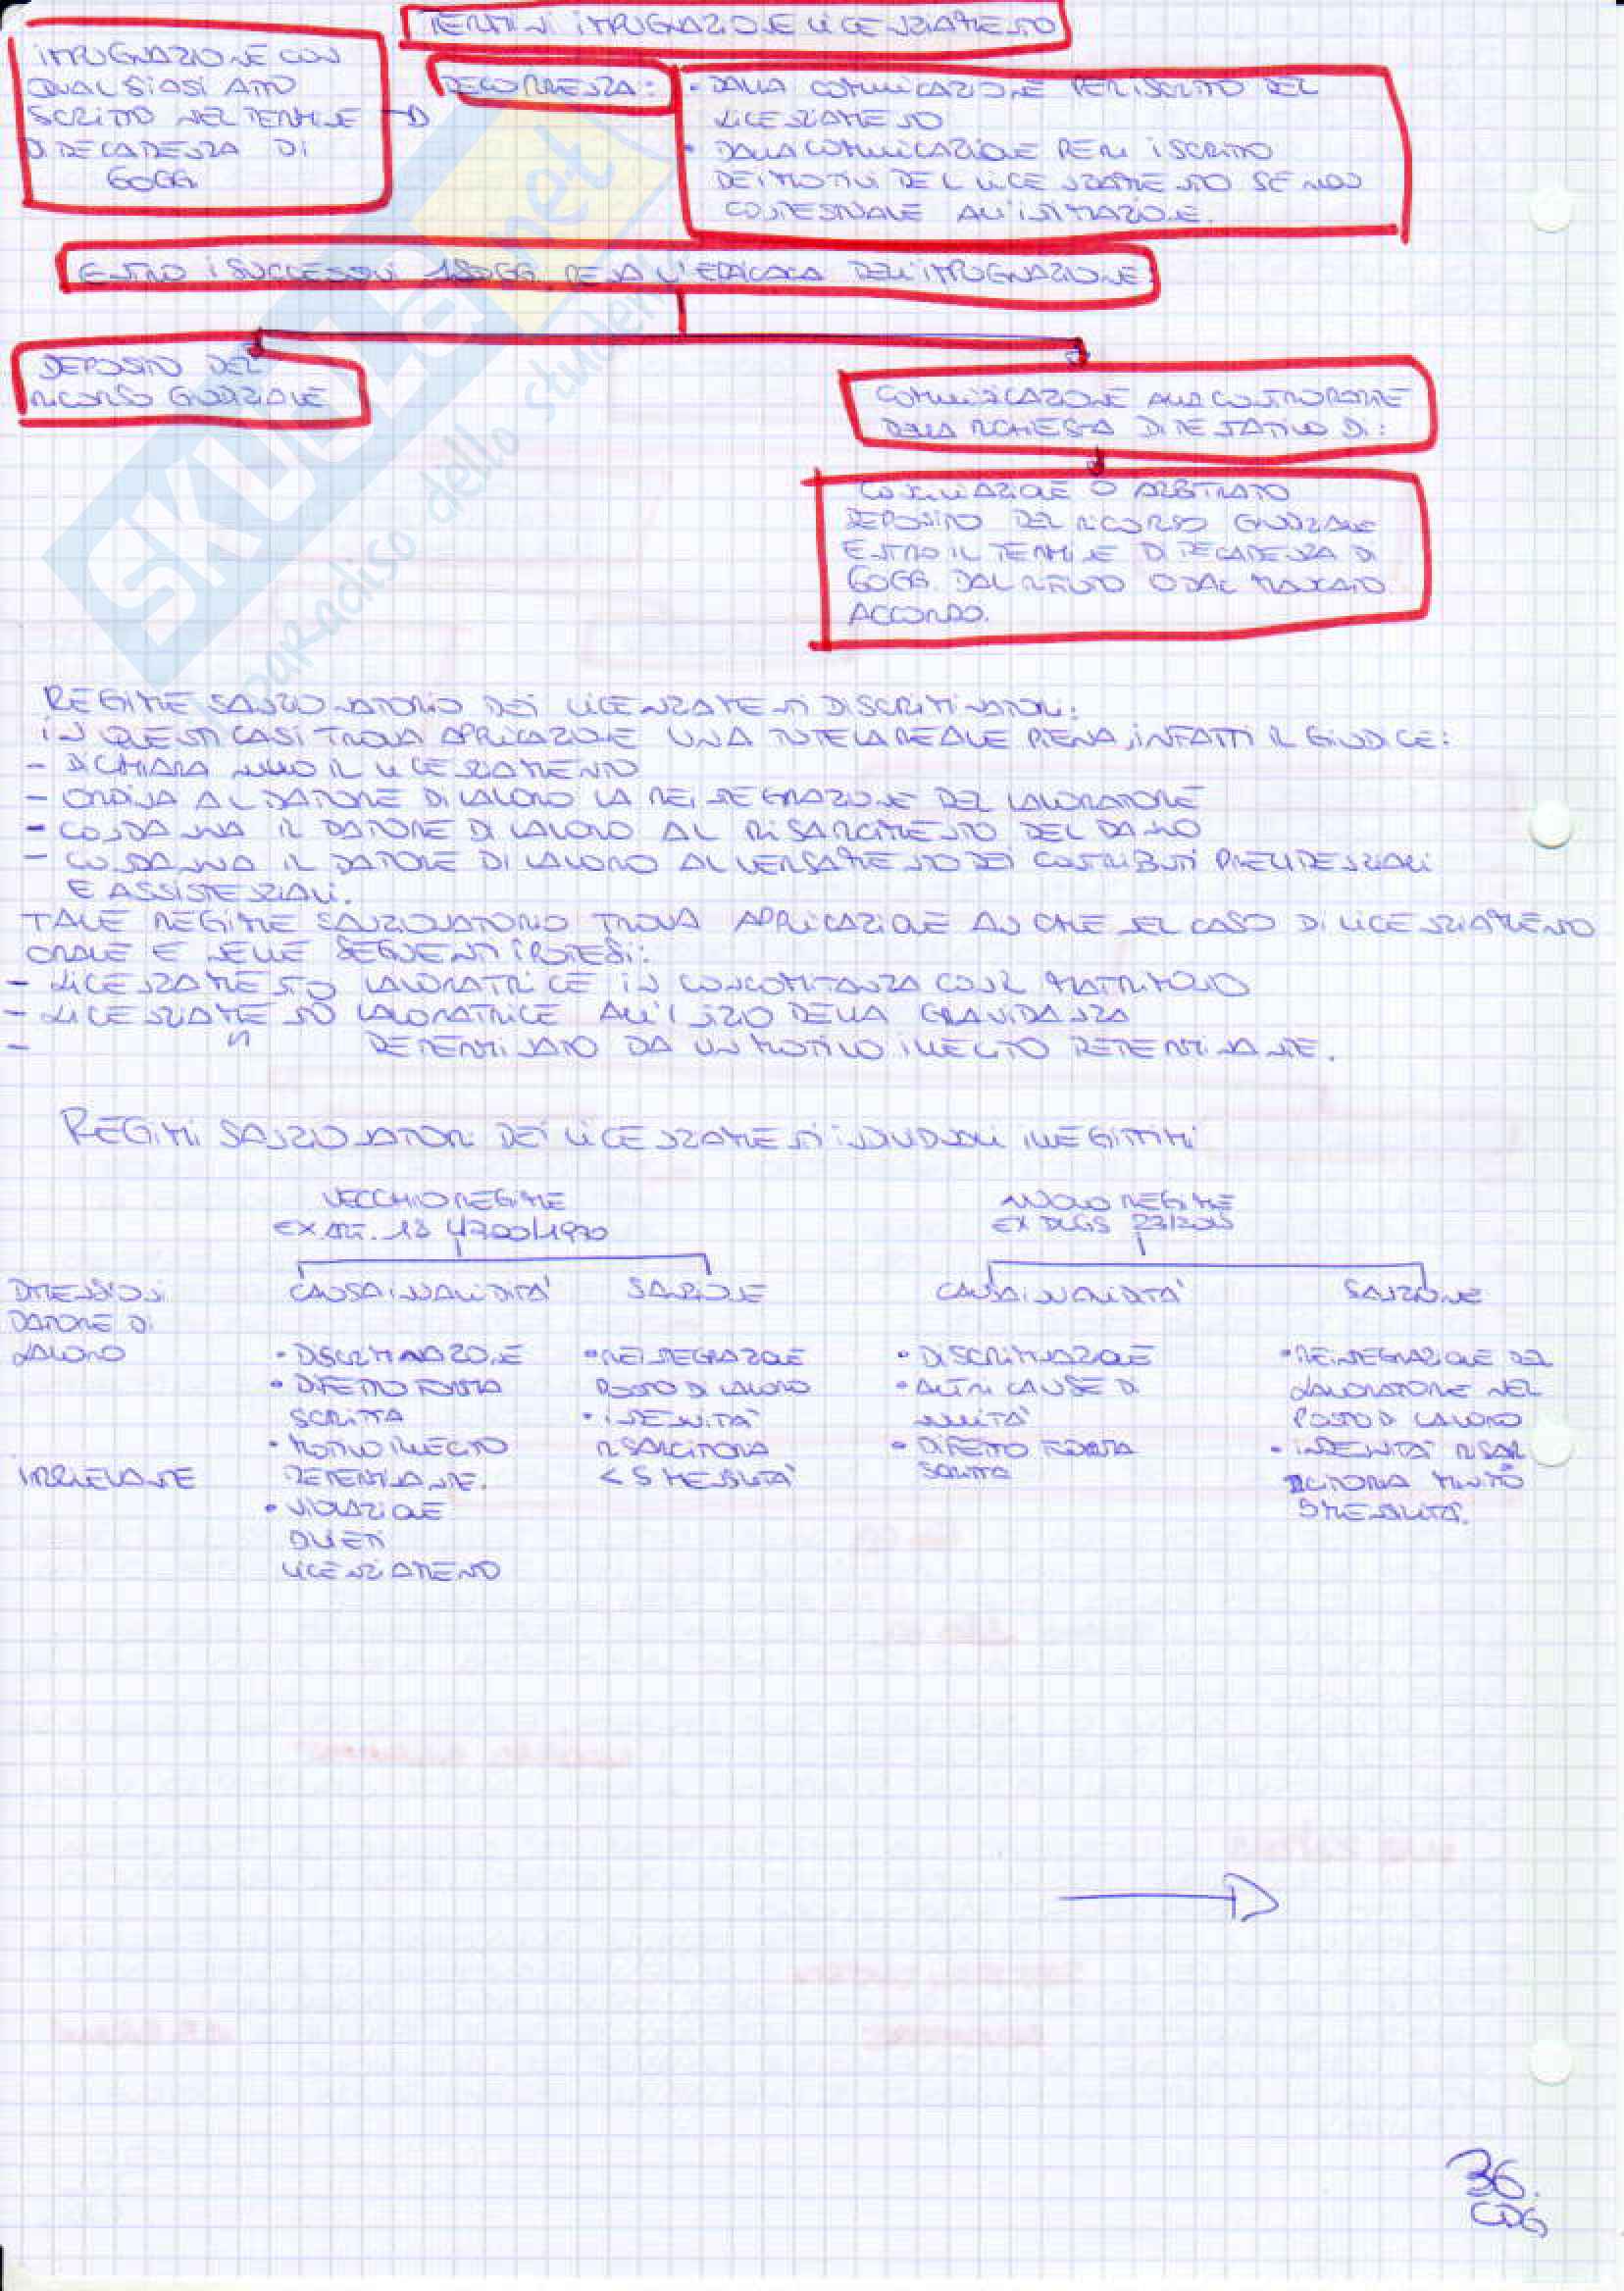 TERMINI IMPUGNAZIONE LICENZIAMENTO
IMPUGNAZIONE CON
QUALSIASI ATTO
SCRITTO NEL TERMINE
DI DECADENZA DI
60GG.
DECORRENZA:
• DALLA COMUNICAZIONE PER ISCRITTO DEL
LICENZIAMENTO
• DALLA COMUNICAZIONE PER ISCRITTO
DEI MOTIVI DEL LICENZIAMENTO SE NON
CONTESTUALE ALL'INTIMAZIONE.
ENTRO I SUCCESSIVI 180GG. PENA L'EFFICACIA DELL'IMPUGNAZIONE:
DEPOSITO DEL
RICORSO GIUDIZIALE
COMUNICAZIONE ALLA CONTROPARTE
DELLA RICHIESTA DI TENTATIVO DI:
CONCILIAZIONE O ARBITRATO
DEPOSITO DEL RICORSO GIUDIZIALE
ENTRO IL TERMINE DI DECADENZA DI
60GG. DAL RIFIUTO O DAL MANCATO
ACCORDO.
SKUOLA.net
il paradiso dello studente
REGIME SANZIONATORIO DEI LICENZIAMENTI DISCRIMINATORI:
IN QUESTI CASI TROVA APPLICAZIONE UNA TUTELA REALE PIENA, INFATTI IL GIUDICE:
- DICHIARA NULLO IL LICENZIAMENTO
- ORDINA AL DATORE DI LAVORO LA REINTEGRAZIONE DEL LAVORATORE
- CONDANNA IL DATORE DI LAVORO AL RISARCIMENTO DEL DANNO
- CONDANNA IL DATORE DI LAVORO AL VERSAMENTO DEI CONTRIBUTI PREVIDENZIALI
E ASSISTENZIALI.
TALE REGIME SANZIONATORIO TROVA APPLICAZIONE ANCHE NEL CASO DI LICENZIAMENTO
ORALE E NELLE SEGUENTI IPOTESI:
- LICENZIAMENTO LAVORATRICE IN CONCOMITANZA COL MATRIMONIO
- LICENZIAMENTO LAVORATRICE ALL'INIZIO DELLA GRAVIDANZA
- " DETERMINATO DA UN MOTIVO ILLECITO DETERMINANTE.
REGIMI SANZIONATORI DEI LICENZIAMENTI INDIVIDUALI ILLEGITTIMI
VECCHIO REGIME
EX ART. 18 L.300/1970
NUOVO REGIME
EX DLGS 23/2015
DIMENSIONI
DATORE DI
LAVORO
IRRILEVANTE
CAUSA INVALIDITÀ
• DISCRIMINAZIONE
• DIFETTO FORMA
SCRITTA
• MOTIVO ILLECITO
DETERMINANTE.
• VIOLAZIONE
DIVIETI
LICENZIAMENTO
SANZIONE
• REINTEGRAZIONE
POSTO DI LAVORO
• INDENNITÀ
RISARCITORIA
< 5 MENSILITÀ
CAUSA INVALIDITÀ
• DISCRIMINAZIONE
• ALTRI CAUSE DI
NULLITÀ
• DIFETTO FORMA
SCRITTA
SANZIONE
• REINTEGRAZIONE DEL
LAVORATORE NEL
POSTO DI LAVORO
• INDENNITÀ RISAR
CITORIA MINIMO
5 MENSILITÀ.
36.
CDG